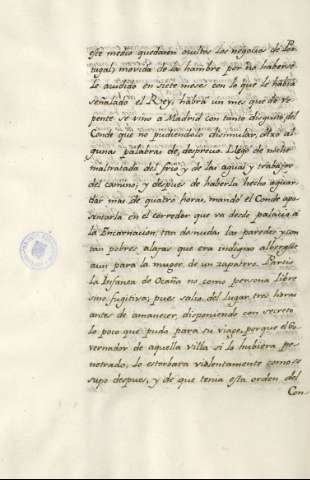 este medio quedasen ocultos los negocios de Por
tugal; movida de la hambre por no haberse
le acudido en siete meses con lo que le habia
señalado el Rey, habrá un mes que de re
pente se vino a Madrid con tanto disgusto del
Conde que no pudiendolo disimular, dixo al
gunas palabras de desprecio. Llegó de noche
maltratada del frio, y de las aguas y trabajos
del camino; y despues de haberla hecho aguar
dar mas de quatro horas, mandó el Conde apo
sentarla en el corredor que va desde palacio a
la Encarnacion, tan desnudas las paredes y con
tan pobres alajas que era indigno albergue
aun para la muger de un zapatero. Partió
la Infanta de Ocaña no como persona libre
sino fugitiva; pues salió del lugar tres horas
antes de amanecer, disponiendo con secreto
lo poco que pudo para su viage, porque el Go
vernador de aquella villa si lo hubiera pe
netrado, lo estorbara violentamente como se
supo despues, y de que tenia esta orden del
Con-